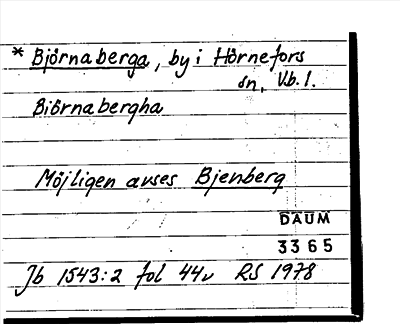 * Björnaberga, by i Hörnefors
sn, Vb. l.
Biörnabergha
Möjligen avses Bjenberg
DAUM
3365
Jb 1543:2 fol 44v RS 1978